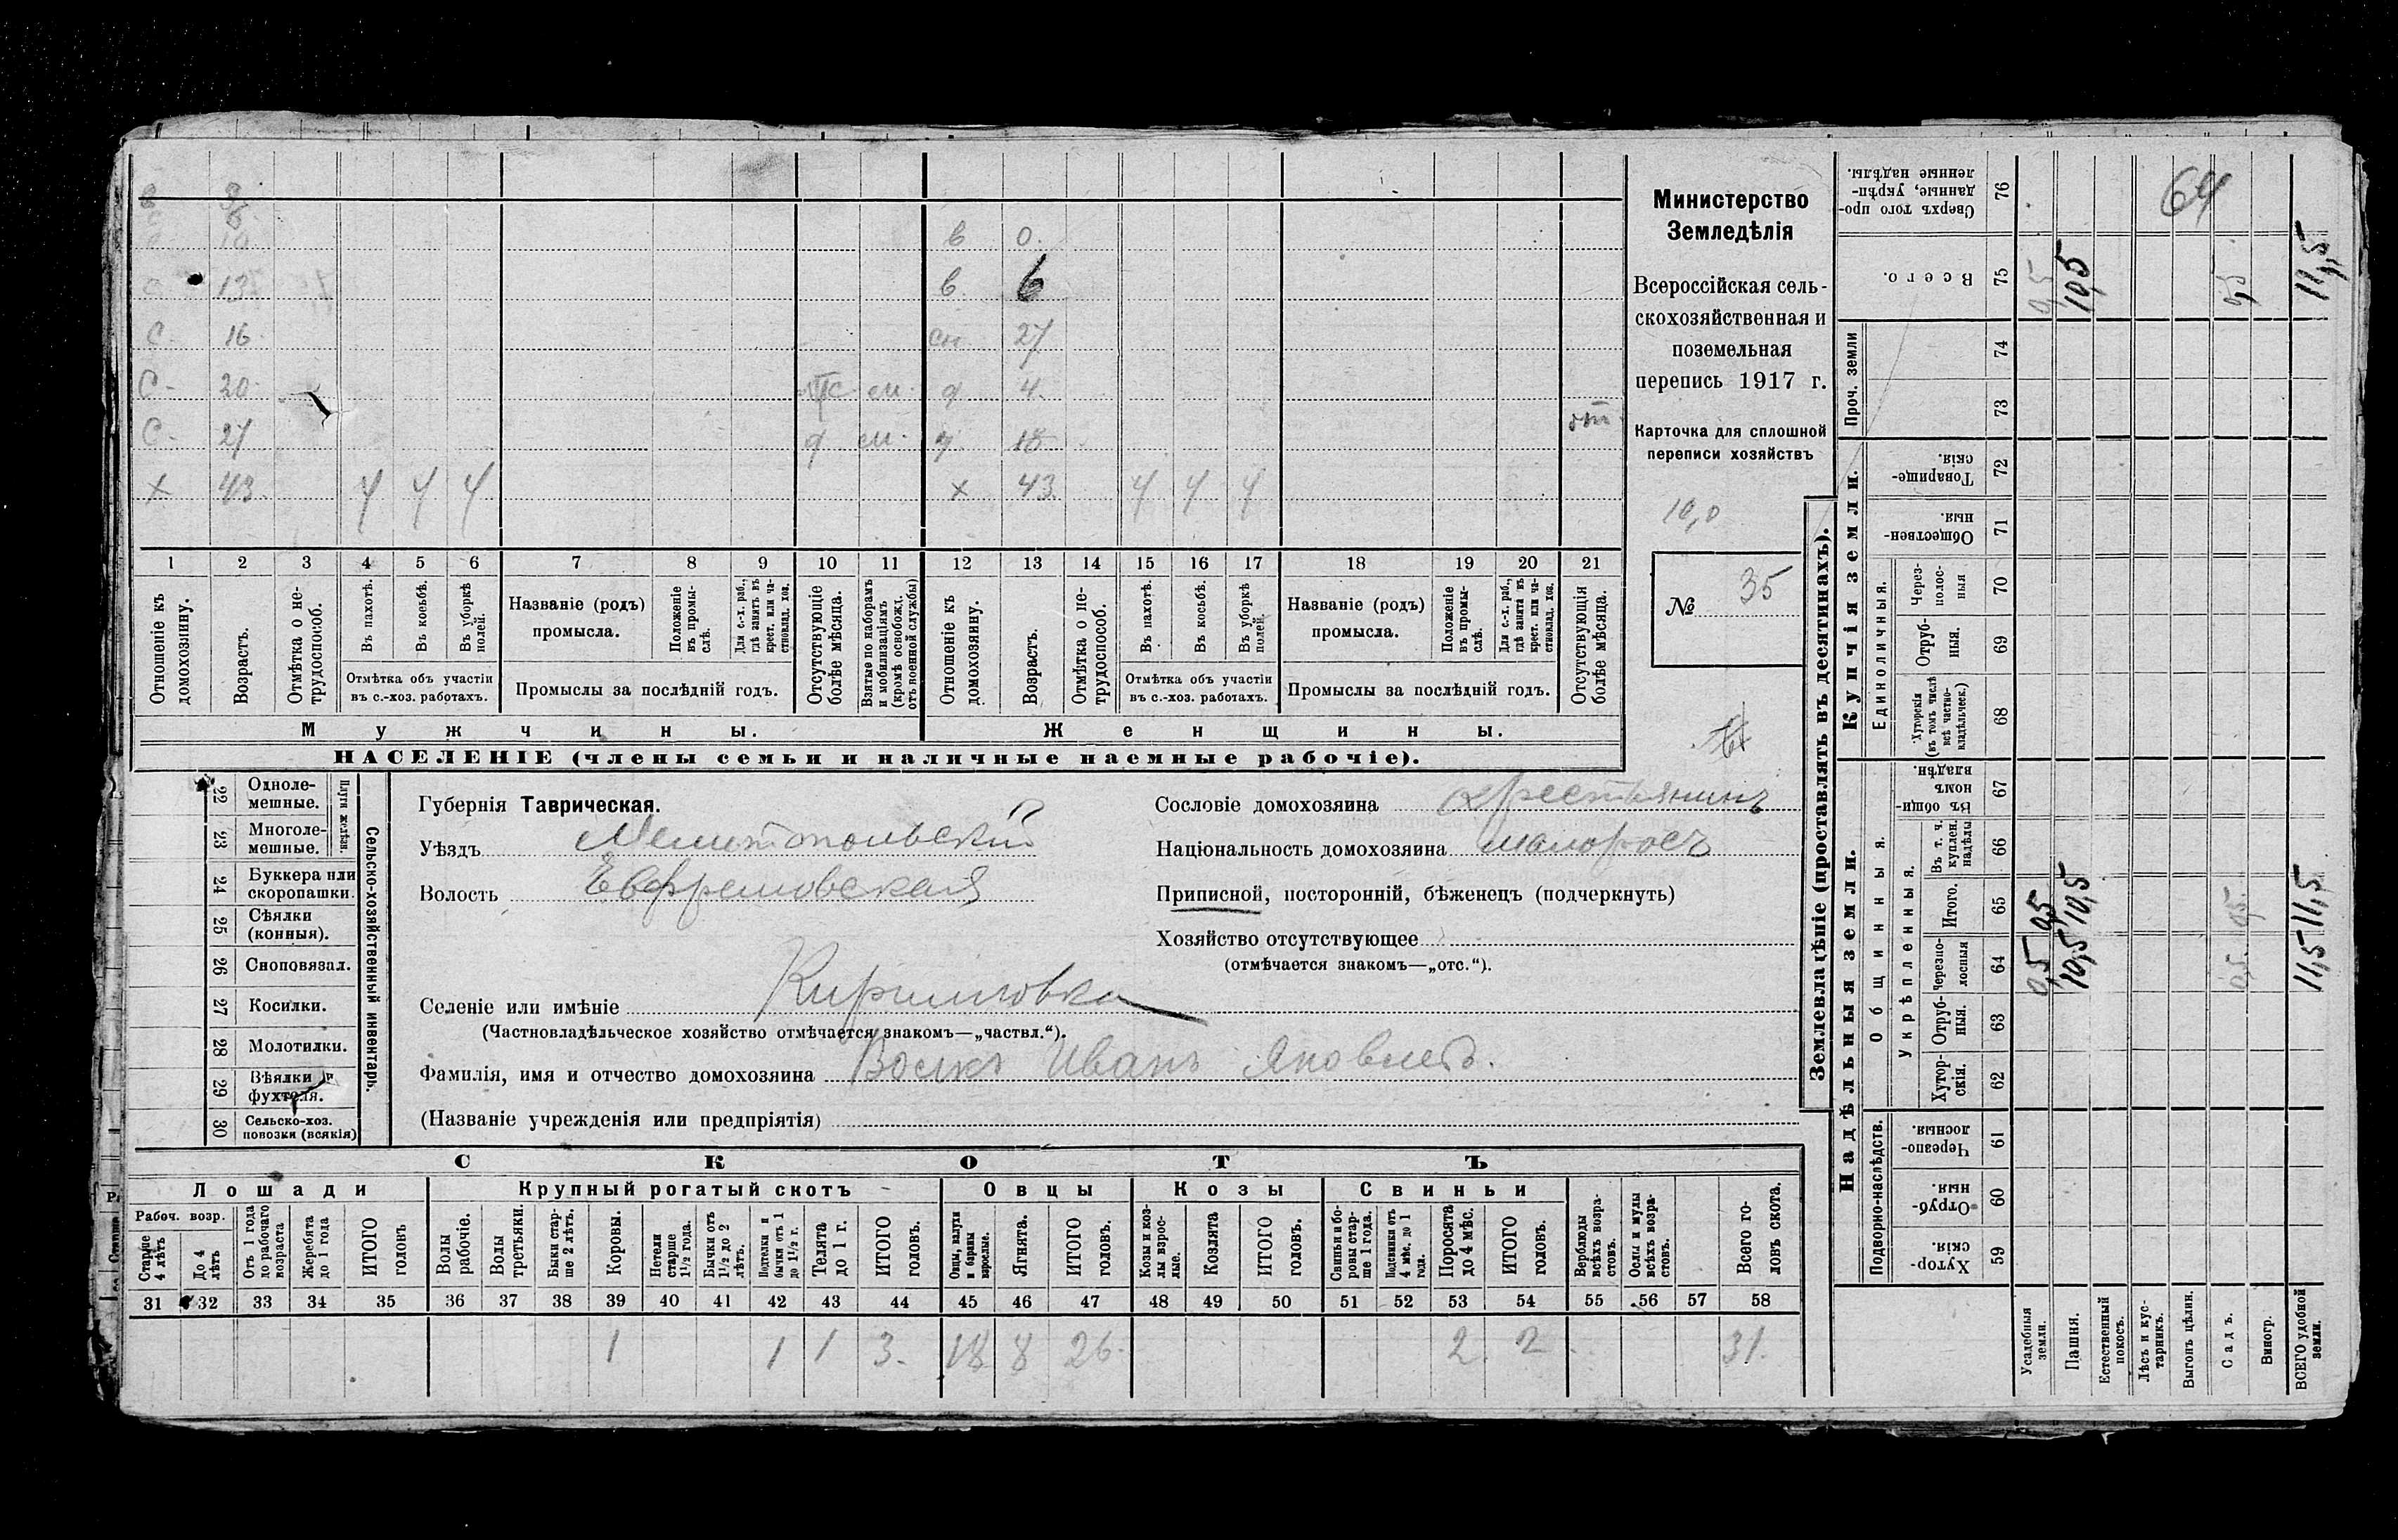 в 0.
в. 6
С. 16 сн 27
С. 20. м. д 4.
С. 27 д м. д. 18 от
х 43. Ч Ч Ч х 43. Ч Ч Ч
1 2 3 4 5 6 7 8 9 10 11 12 13 14 15 16 17 18 19 20 21
Отношеніе къ домохозяину.
Возрастъ.
Отмѣтка о не-трудоспособ.
Въ пахотѣ.
Въ косьбѣ.
Въ уборкѣ полей.
Отмѣтка объ участіи
въ с.-хоз. работахъ.
Названіе (родъ)
промысла.
Положеніе въ промы-слѣ.
Для с.-х. раб., гдѣ занятъ въ крест. или ча-стновлад. хоз.
Промыслы за послѣдній годъ.
Отсутствующіе болѣе мѣсяца.
Взятые по наборамъ и мобилизаціямъ (кромѣ освобожд. отъ военной службы)
Отношеніе къ домохозяину.
Возрастъ.
Отмѣтка о не-трудоспособ.
Въ пахотѣ.
Въ косьбѣ.
Въ уборкѣ полей.
Отмѣтка объ участіи
въ с.-хоз. работахъ.
Названіе (родъ)
промысла.
Положеніе въ промы-слѣ.
Для с.-х. раб., гдѣ занята въ крест. или ча-стновлад. хоз.
Промыслы за послѣдній годъ.
Отсутствующія болѣе мѣсяца.
Мужчины. Женщины.
НАСЕЛЕНІЕ (члены семьи и наличные наемные рабочіе).
Министерство
Земледѣлія
Всероссійская сель-
скохозяйственная и
поземельная
перепись 1917 г.
Карточка для сплошной
переписи хозяйствъ
10,0
№ 35
22 Одноле-мешные.
23 Многоле-мешные.
Плуги желѣзн.
24 Буккера или скоропашки.
25 Сѣялки (конныя).
26 Сноповязал.
27 Косилки.
28 Молотилки.
29 Вѣялки и фухтеля.
30 Сельско-хоз. повозки (всякія)
Сельско-хозяйственный инвентарь.
Губернія Таврическая.
Уѣздъ Мелитопольскій
Волость Ефремовская
Селеніе или имѣніе Кирилловка
(Частновладѣльческое хозяйство отмѣчается знакомъ—„частвл.“).
Фамилія, имя и отчество домохозяина Волкъ Иванъ Яковлев.
(Названіе учрежденія или предпріятія)
Сословіе домохозяина крестьянинъ
Національность домохозяина малоросъ
Приписной, посторонній, бѣженецъ (подчеркнуть)
Хозяйство отсутствующее
(отмѣчается знакомъ—„отс.“).
СКОТЪ
Лошади Крупный рогатый скотъ Овцы Козы Свиньи
Рабоч. возр.
Старше 4 лѣтъ
До 4 лѣтъ
Отъ 1 года до рабочаго возраста
Жеребята до 1 года
ИТОГО головъ
Волы рабочіе.
Волы третьяки.
Быки стар-ше 2 лѣтъ.
Коровы.
Нетели старше 1½ года.
Бычки отъ 1½ до 2 лѣтъ.
Подтелки и бычки отъ 1 до 1½ г.
Телята до 1 г.
ИТОГО головъ.
Овцы, валухи и бараны взрослые.
Ягнята.
ИТОГО головъ.
Козы и коз-лы взрос-лые.
Козлята
ИТОГО головъ.
Свиньи и бо-ровы стар-ше 1 года.
Подсвинки отъ 4 мѣс. до 1 года.
Поросята до 4 мѣс.
ИТОГО головъ.
Верблюды всѣхъ возра-стовъ.
Ослы и мулы всѣхъ возра-стовъ.
Всего го-ловъ скота.
31 32 33 34 35 36 37 38 39 40 41 42 43 44 45 46 47 48 49 50 51 52 53 54 55 56 57 58
1 1 1 3. 18 8 26. 2. 2 31.
Землевладѣніе (проставлять въ десятинахъ).
Надѣльныя земли. Купчія земли. Проч. земли
Подворно-наслѣдств. Общинныя. Единоличныя.
Укрѣпленныя.
Хутор-скія. 59
Отруб-ныя. 60
Черезпо-лосныя 61
Хутор-скія. 62
Отруб-ныя. 63
Черезпо-лосныя 64
Итого. 65
Въ т. ч. куплен. надѣлы 66
Въ общи-номъ владѣн. 67
Хуторскія (въ томъ числѣ всѣ частно-владѣльческ.) 68
Отруб-ныя. 69
Через-полос-ныя 70
Обществен-ныя. 71
Товарище-скія. 72
73
74
Всего. 75
Сверхъ того про-данные, укрѣп-ленные надѣлы. 76
64
Усадебныя земли. 0,5 0,5 0,5
Пашня. 10,5 10,5 10,5
Естественный покосъ.
Лѣсъ и кус-тарникъ.
Выгонъ цѣлин.
Садъ. 0,5. 0,5. 0,5
Виногр.
ВСЕГО удобной земли. 11,5 11,5 11,5